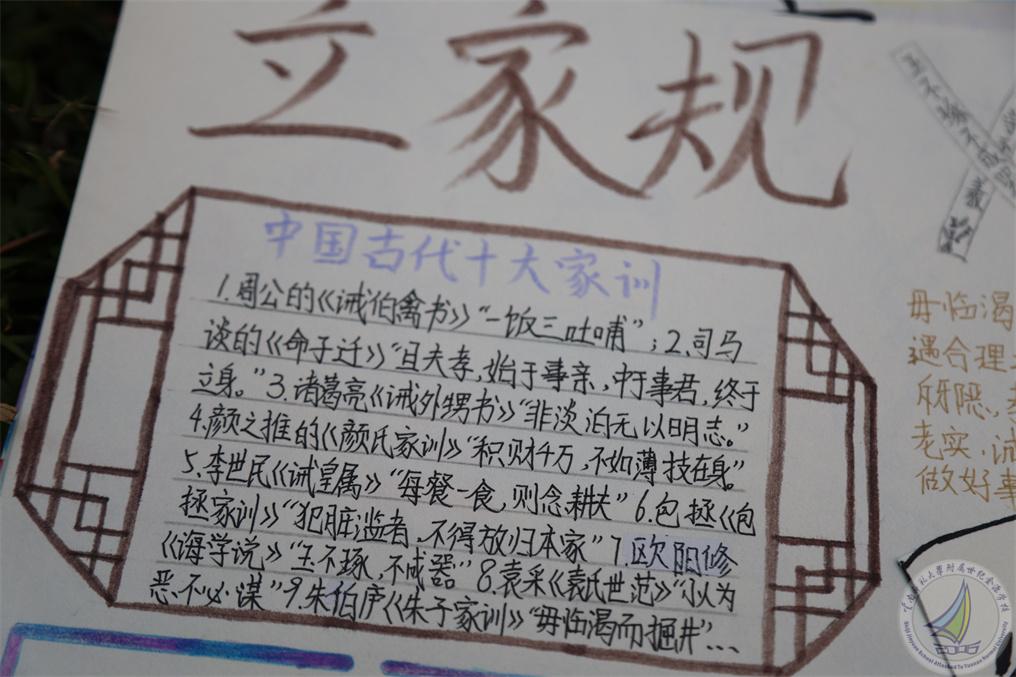 立家规
中国古代十大家训
1.周公的《诫伯禽书》“一饭三吐哺”；2.司马
谈的《命子迁》“且夫孝，始于事亲，中于事君，终于
立身。”3.诸葛亮《诫外甥书》“非淡泊无以明志。”
4.颜之推的《颜氏家训》“积财千万，不如薄技在身。”
5.李世民《诫皇属》“每餐一食，则念耕夫”6.包拯《包
拯家训》“犯脏滥者，不得放归本家”7.欧阳修
《诲学说》“玉不琢，不成器”8.袁采《袁氏世范》“小人为
恶不必谏”9.朱伯庐《朱子家训》“毋临渴而掘井”…
毋临渴
遇合理
老实，诚
做好事